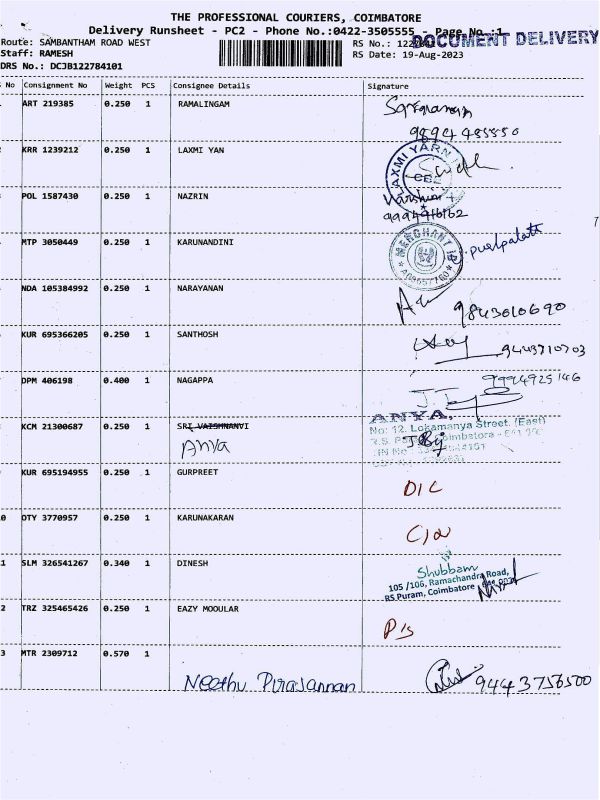 THE PROFESSIONAL COURIERS, COIMBATORE
Delivery Runsheet - PC2 - Phone No.:0422-3505555 - Page No.:1
DOCUMENT DELIVERY
Route: SAMBANTHAM ROAD WEST
Staff: RAMESH
DRS No.: DCJB122784101
RS No.:
RS Date: 19-Aug-2023
No Consignment No Weight PCS Consignee Details Signature
ART 219385 0.250 1 RAMALINGAM
9894485550
KRR 1239212 0.250 1 LAXMI YAN
LAXMI YARN
CBE
POL 1587430 0.250 1 NAZRIN
9994916162
MTP 3050449 0.250 1 KARUNANDINI
MERCHANT
pushpalatha
NDA 105384992 0.250 1 NARAYANAN
9843010690
KUR 695366205 0.250 1 SANTHOSH
9443710703
DPM 406198 0.400 1 NAGAPPA
9994925146
KCM 21300687 0.250 1 SRI VAISHNANVI
Anya
ANYA,
No: 12, Lokamanya Street, (East)
KUR 695194955 0.250 1 GURPREET
D/C
0 OTY 3770957 0.250 1 KARUNAKARAN
1 SLM 326541267 0.340 1 DINESH
Shubbam
105 /106, Ramachandra Road,
RS Puram, Coimbatore
2 TRZ 325465426 0.250 1 EAZY MOOULAR
P/s
3 MTR 2309712 0.570 1
Neethu Pirasannan
9443756500